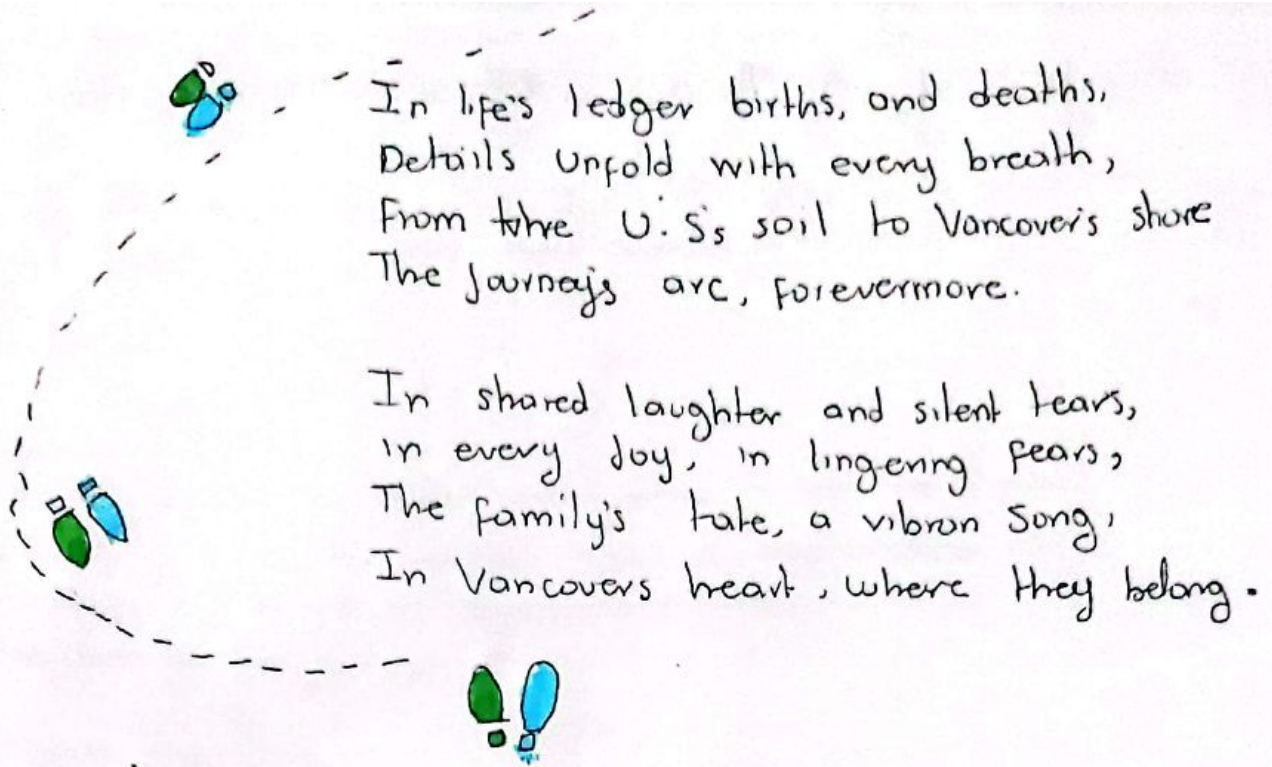 In life's ledger births, and deaths,
Details unfold with every breath,
From the U.S's soil to Vancover's shore
The Journey's arc, forevermore.
In shared laughter and silent tears,
in every Joy, in lingering fears,
The family's tale, a vibran song,
In Vancovers heart, where they belong.